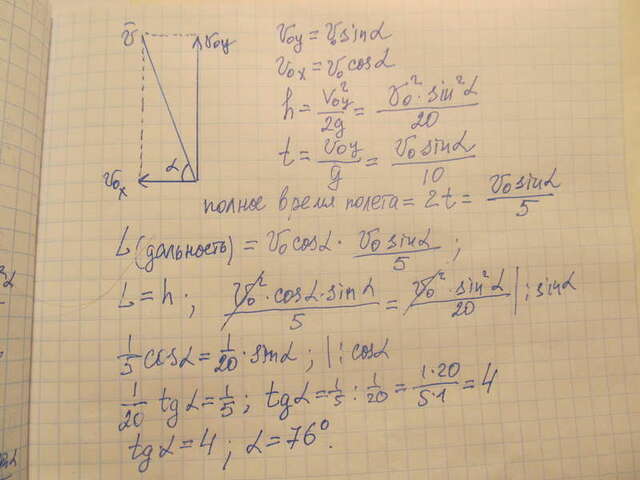 v̄ v₀y
α
v₀x
v₀y = v₀ sinα
v₀x = v₀ cosα
h = v₀y²/2g = v₀²·sin²α/20
t = v₀y/g = v₀ sinα/10
полное время полета = 2t = v₀ sinα/5
L (дальность) = v₀ cosα · v₀ sinα/5 ;
L = h ; v₀²·cosα·sinα/5 = v₀²·sin²α/20 | : sinα
1/5 cosα = 1/20 · sinα ; | : cosα
1/20 tgα = 1/5 ; tgα = 1/5 : 1/20 = 1·20/5·1 = 4
tgα = 4 ; α = 76°.